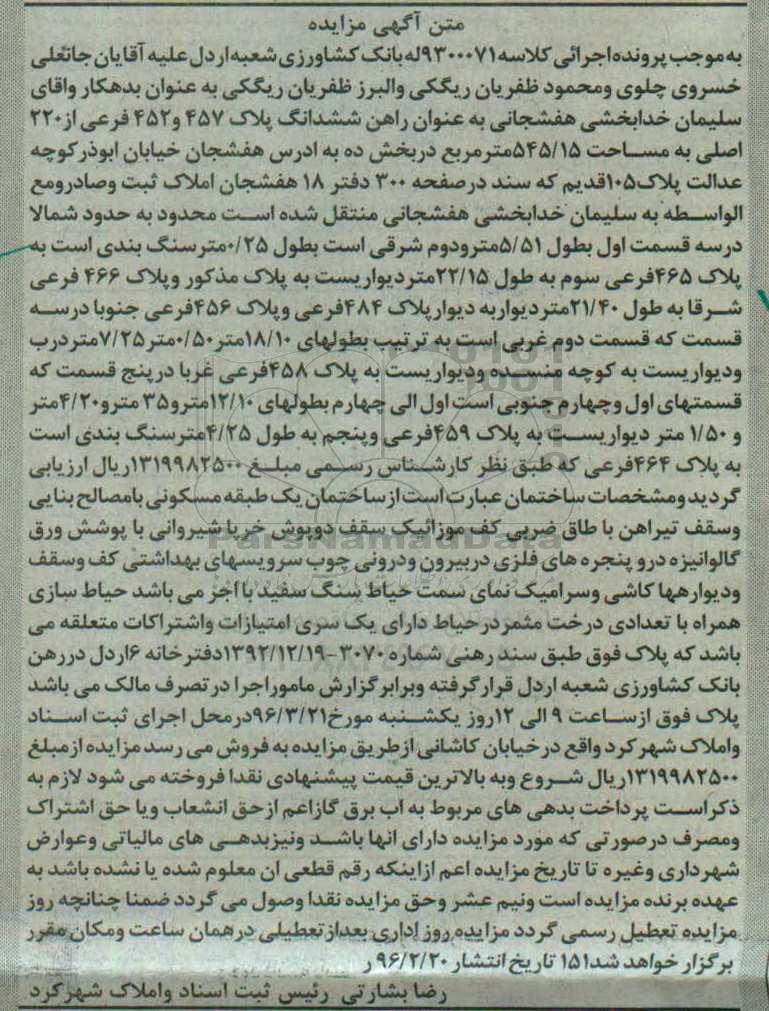 متن آگهی مزایده
به موجب پرونده اجرائی کلاسه ۹۳۰۰۰۷۱ له بانک کشاورزی شعبه اردل علیه آقایان جانعلی
خسروی چلوی ومحمود ظفریان ریگکی والبرز ظفریان ریگکی به عنوان بدهکار واقای
سلیمان خدابخشی هفشجانی به عنوان راهن ششدانگ پلاک ۴۵۷ و۴۵۲ فرعی از۲۲۰
اصلی به مساحت ۵۴۵/۱۵مترمربع دربخش ده به ادرس هفشجان خیابان ابوذر کوچه
عدالت پلاک۱۰۵قدیم که سند درصفحه ۳۰۰ دفتر ۱۸ هفشجان املاک ثبت وصادرومع
الواسطه به سلیمان خدابخشی هفشجانی منتقل شده است محدود به حدود شمالا
درسه قسمت اول بطول ۵/۵۱مترودوم شرقی است بطول ۰/۲۵مترسنگ بندی است به
پلاک ۴۶۵فرعی سوم به طول ۲۲/۱۵متردیواریست به پلاک مذکور وپلاک ۴۶۶ فرعی
شرقا به طول ۲۱/۴۰متردیواربه دیوارپلاک ۴۸۴فرعی وپلاک ۴۵۶فرعی جنوبا درسه
قسمت که قسمت دوم غربی است به ترتیب بطولهای ۱۸/۱۰متر۰/۵۰متر۷/۲۵متردرب
ودیواریست به کوچه منسده ودیواریست به پلاک ۴۵۸فرعی غربا درپنج قسمت که
قسمتهای اول وچهارم جنوبی است اول الی چهارم بطولهای ۱۲/۱۰مترو۳۵ مترو۴/۲۰متر
و ۱/۵۰ متر دیواریست به پلاک ۴۵۹فرعی وپنجم به طول ۴/۲۵مترسنگ بندی است
به پلاک ۴۶۴فرعی که طبق نظر کارشناس رسمی مبلغ ۱۳۱۹۹۸۲۵۰۰ریال ارزیابی
گردیدومشخصات ساختمان عبارت است از ساختمان یک طبقه مسکونی بامصالح بنایی
وسقف تیراهن با طاق ضربی کف موزائیک سقف دوپوش خرپا شیروانی با پوشش ورق
گالوانیزه درو پنجره های فلزی دربیرون ودرونی چوب سرویسهای بهداشتی کف وسقف
ودیوارهها کاشی وسرامیک نمای سمت حیاط سنگ سفید با اجر می باشد حیاط سازی
همراه با تعدادی درخت مثمردرحیاط دارای یک سری امتیازات واشتراکات متعلقه می
باشد که پلاک فوق طبق سند رهنی شماره ۳۰۷۰-۱۳۹۲/۱۲/۱۹دفترخانه ۶اردل دررهن
بانک کشاورزی شعبه اردل قرارگرفته وبرابرگزارش ماموراجرا درتصرف مالک می باشد
پلاک فوق ازساعت ۹ الی ۱۲روز یکشنبه مورخ۹۶/۳/۲۱درمحل اجرای ثبت اسناد
واملاک شهرکرد واقع درخیابان کاشانی ازطریق مزایده به فروش می رسد مزایده ازمبلغ
۱۳۱۹۹۸۲۵۰۰ریال شروع وبه بالاترین قیمت پیشنهادی نقدا فروخته می شود لازم به
ذکراست پرداخت بدهی های مربوط به اب برق گازاعم ازحق انشعاب ویا حق اشتراک
ومصرف درصورتی که مورد مزایده دارای انها باشد ونیزبدهی های مالیاتی وعوارض
شهرداری وغیره تا تاریخ مزایده اعم ازاینکه رقم قطعی ان معلوم شده یا نشده باشد به
عهده برنده مزایده است ونیم عشر وحق مزایده نقدا وصول می گردد ضمنا چنانچه روز
مزایده تعطیل رسمی گردد مزایده روز اداری بعدازتعطیلی درهمان ساعت ومکان مقرر
برگزار خواهد شد۱۵۱ تاریخ انتشار ۹۶/۲/۲۰ ر
رضا بشارتی رئیس ثبت اسناد واملاک شهرکرد
ParsNamadData